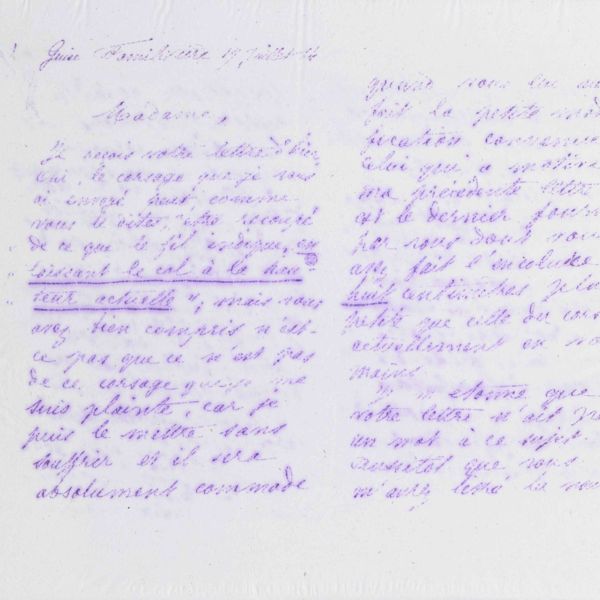 Guise Familistère 19 juillet
Madame,
Je reçois votre lettre d'hier
Oui, le corsage que je vous
ai envoyé peut, comme
vous le dites, "être recoupé
de ce que le fil indique, en
laissant le col à la hau
teur actuelle", mais vous
avez bien compris n'est-
ce pas que ce n'est pas
de ce corsage que je me
suis plainte, car je
puis le mettre sans
souffrir et il sera
absolument commode
quand vous lui au
fait la petite mod
fication convenue
Celui qui a motivé
ma précédente lettre
est le dernier fourn
par vous dont vous
avez fait l'encolure
huit centimètres plus
petite que celle du cors
actuellement en vo
mains.
Je m'étonne que
votre lettre n'ait pa
un mot à ce sujet.
Aussitôt que vous
m'avez la